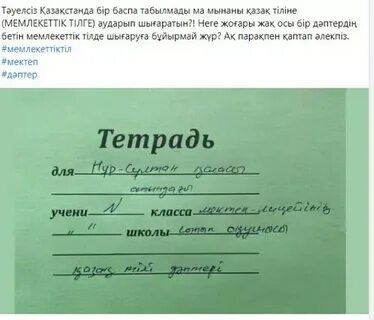 Тәуелсіз Қазақстанда бір баспа табылмады ма мынаны қазақ тіліне
(МЕМЛЕКЕТТІК ТІЛГЕ) аударып шығаратын?! Неге жоғары жақ осы бір дәптердің
бетін мемлекеттік тілде шығаруға бұйырмай жүр? Ақ парақпен қаптап әлекпіз.
#мемлекеттіктіл
#мектеп
#дәптер
Тетрадь
для Нұр-Сұлтан қаласы
атындағы
учени N класса мектеп-лицейінің
" " школы оқушысы
қазақ тілі дәптері